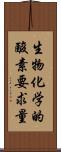 生物化学的
酸素要求量